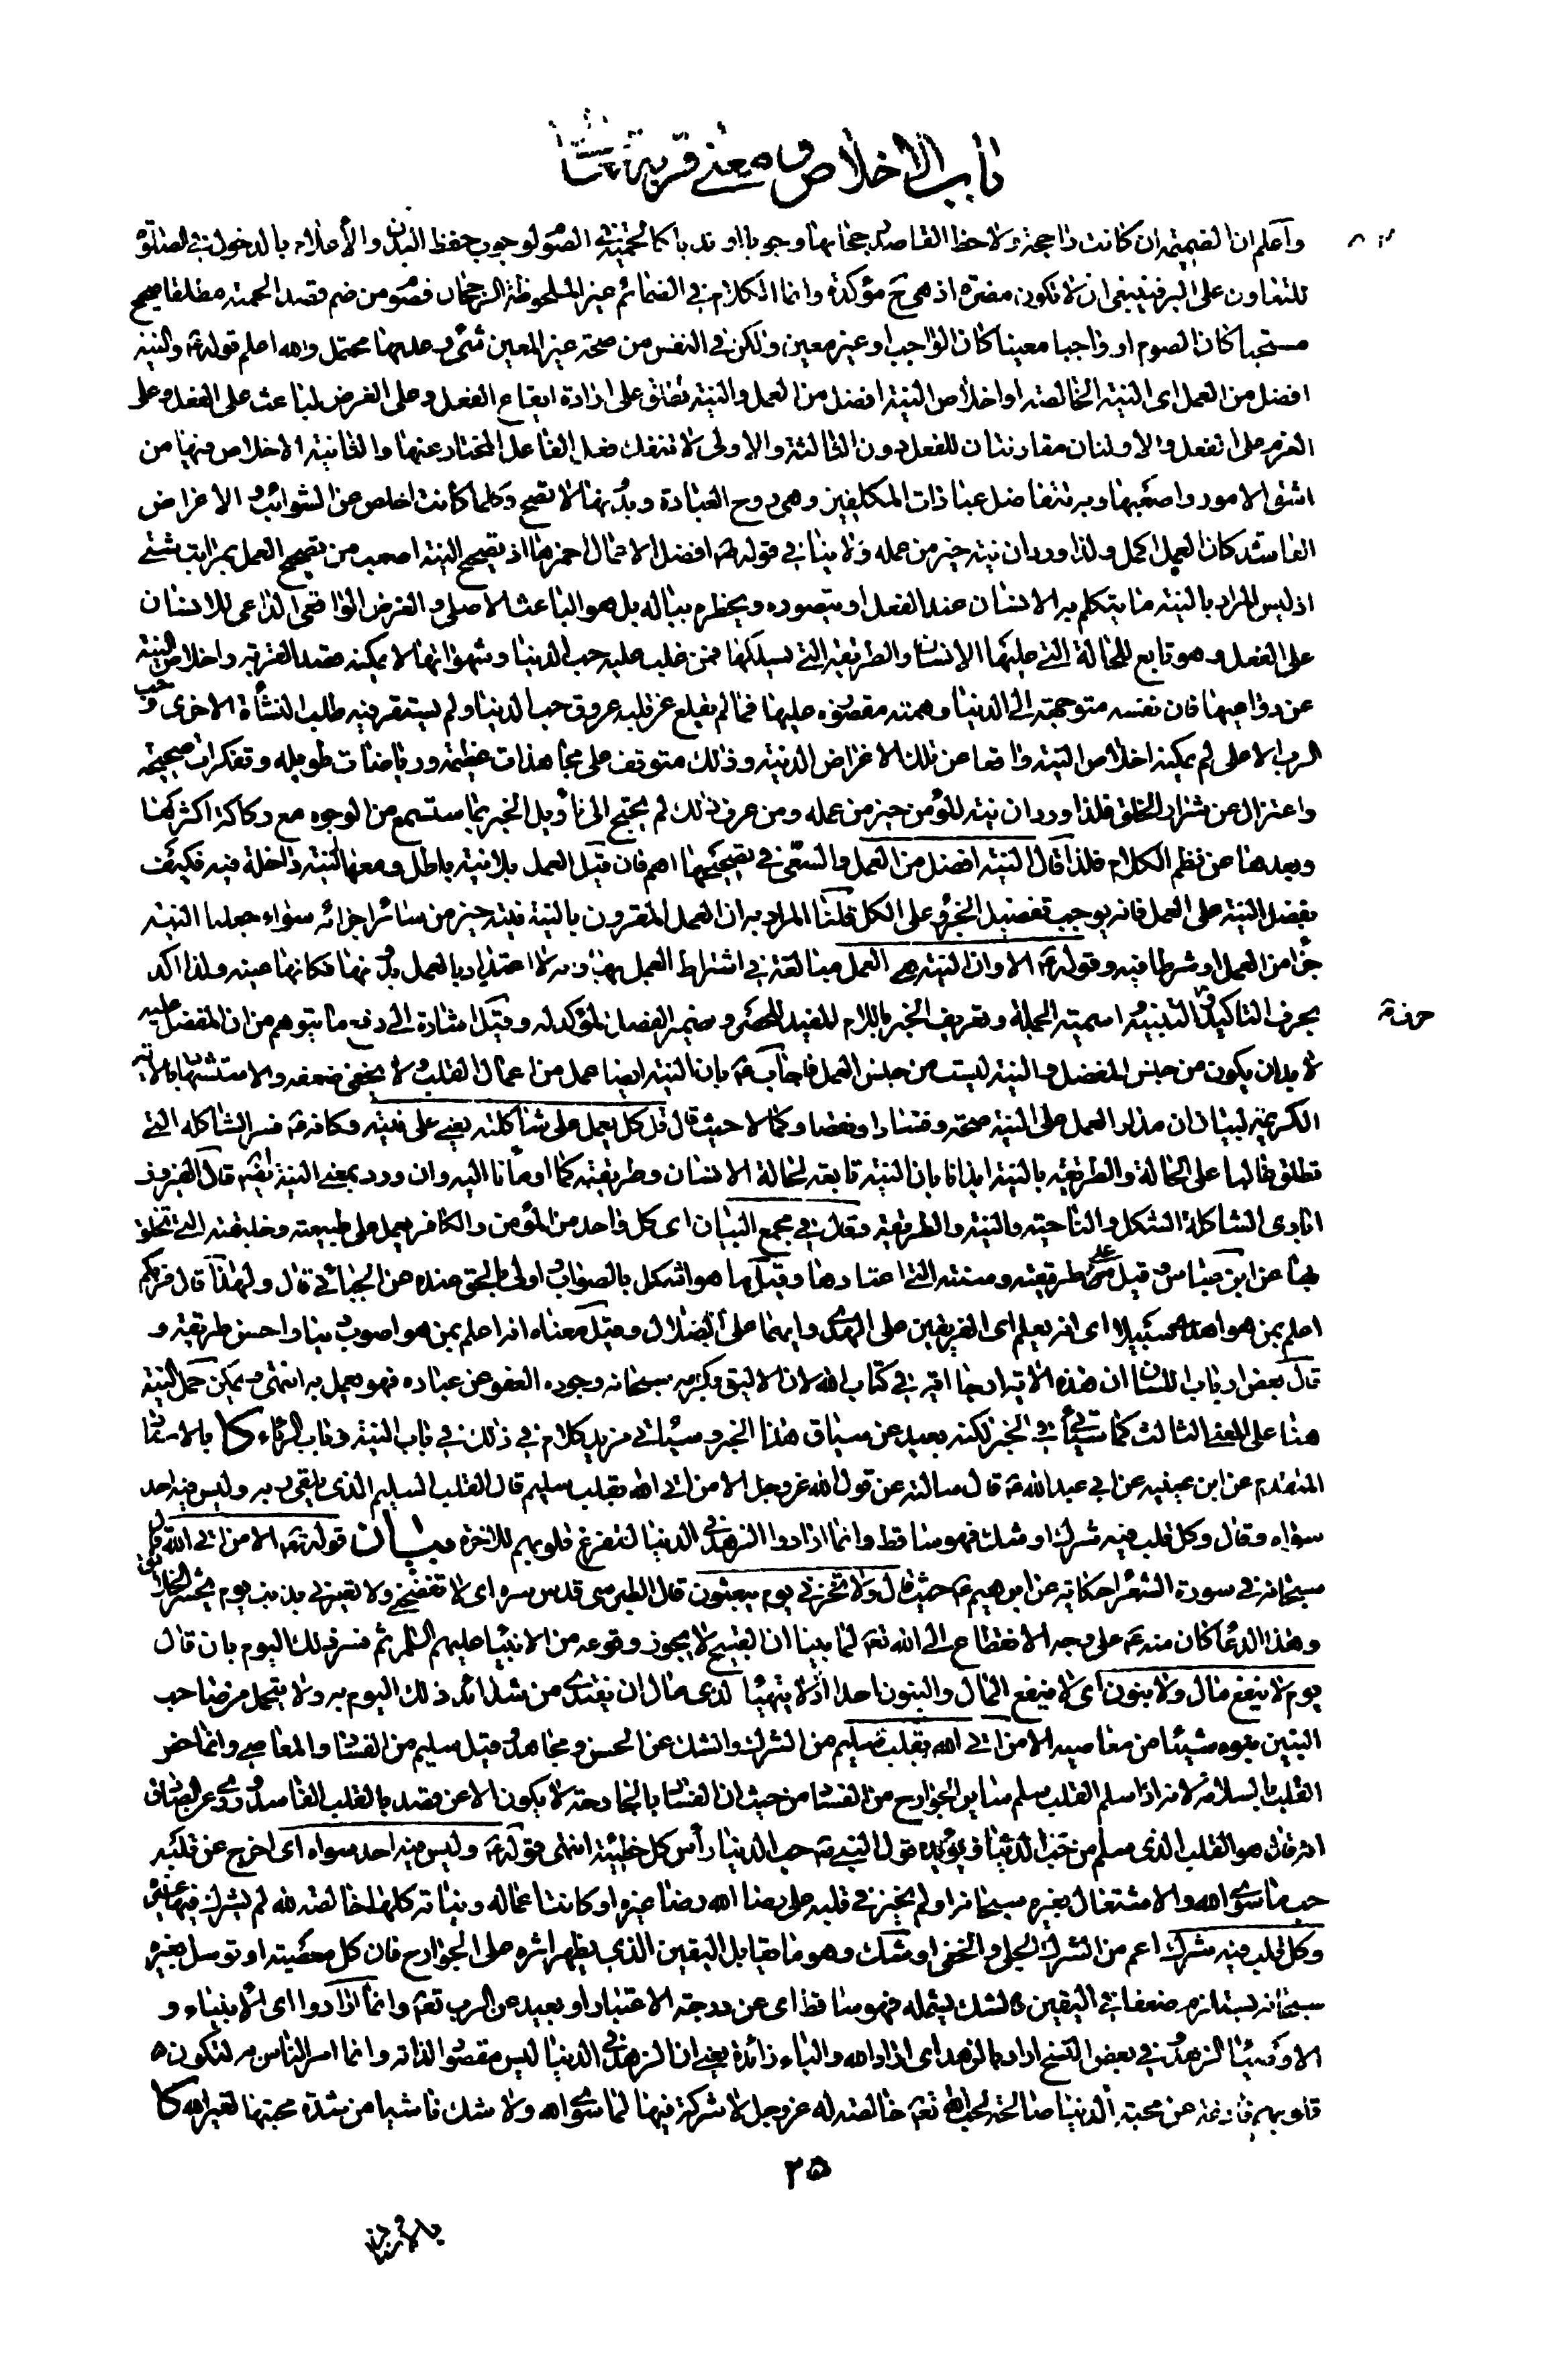 باب الاخلاص و معنى قربته تعالى
واعلم ان الضميمة ان كانت راجحة ولاحظ القاصد رجحانها وجوبا او ندبا كالحمية في الصوم لوجوب حفظ البدن والاعلام بالدخول في الصلوة
للتعاون على البر فينبغي ان لا تكون مضرة اذ هي ح مؤكدة وانما الكلام في الضمائم غير الملحوظة الرجحان فصوم من ضم قصد الحمية مطلقا صحيح
مستحبا كان الصوم او واجبا معينا كان الواجب او غير معين ولكن في النفس من صحة غير المعين شيء و عدمها محتمل والله اعلم قوله ع والنية
افضل من العمل اى النية الخالصة او اخلاص النية افضل من العمل والنية تطلق على ارادة ايقاع الفعل وعلى الغرض الباعث على الفعل وعلى
العزم على الفعل والاولتان مقارنتان للفعل دون الثالثة والاولى لا تنفك فعل الفاعل المختار عنها والثانية الاخلاص فيها من
اشق الامور واصعبها وبه تتفاضل عبادات المكلفين وهي روح العبادة وبدونها لا تصح وكلما كانت اخلص عن الشوائب و الاغراض
الفاسدة كان العمل اكمل ولذا ورد ان نية خير من عمله ولا ينافي قوله ص افضل الاعمال احمزها اذ تصحيح النية اصعب من تصحيح العمل بمراتب شتى
اذ ليس المراد بالنية ما يتكلم به الانسان عند الفعل او يتصوره ويخطره بباله بل هو الباعث الاصلي و الغرض الواقعي الداعي للانسان
على الفعل و هو تابع للحالة التي عليها الانسان والطريقة التي يسلكها فمن غلب عليه حب الدنيا و شهواتها لا يمكنه قصد القربة و اخلاص النية
عن دواعيها فان نفسه متوجهة الى الدنيا و همته مقصورة عليها فما لم يقلع عن قلبه عروق حب الدنيا ولم يستقر فيه طلب النشأة الاخرى و حب
الرب الاعلى لم يمكنه اخلاص النية واقعا عن تلك الاغراض الدنية وذلك متوقف على مجاهدات عظيمة و رياضات طويله و تفكرات صحيحة
واعتزال عن شرار الخلق فلذا ورد ان نية المؤمن خير من عمله ومن عرف ذلك لم يحتج الى تأويل الخبر بما ستسمع من الوجوه مع ركاكة اكثرها
وبعدها عن نظم الكلام فلذا قال النية افضل من العمل والسعي في تصحيحها اهم فان قيل العمل بلا نية باطل ومعها النية داخلة فيه فكيف
يفضل النية على العمل فانه يوجب تفضيل الجزء على الكل قلنا المراد به ان العمل المقرون بالنية نيته خير من سائر اجزائه سواء جعلنا النية
جزءا من العمل او شرطا فيه وقوله ع الا وان النية هي العمل مبالغة في اشتراط العمل بها و انه لا اعتداد بالعمل بدونها فكانها عينه ولذا اكد
بحرف التاكيد و حرف التنبيه و اسمية الجملة وتعريف الخبر باللام المفيد للحصر و ضمير الفصل المؤكد له و قيل اشارة الى دفع ما يتوهم من ان المفضل عليه
لا بد ان يكون من جنس المفضل و النية ليست من جنس العمل فاجاب ع بان النية ايضا عمل من اعمال القلب و لا يخفى ضعفه والاستشهاد بالاية
الكريمة لبيان ان مدار العمل على النية صحة و فسادا و نقصا وكمالا حيث قال قل كل يعمل على شاكلته يعني على نيته وكانه ع فسر الشاكلة التي
تطلق غالبا على الحالة والطريقة بالنية ايذانا بان النية تابعة لحالة الانسان وطريقته كما اومأنا اليه وان ورد بمعنى النية ايضا قال الفيروز
ابادى الشاكلة الشكل والناحية والنية والطريقة وقال في مجمع البيان اى كل واحد من المؤمن والكافر يعمل على طبيعته وخليقته التي تخلق
بها عن ابن عباس و قيل على طريقته وسنته التي اعتادها وقيل ما هو اشكل بالصواب و اولى بالحق عنده عن الجبائي قال ولهذا قال فربكم
اعلم بمن هو اهدى سبيلا اى انه يعلم اى الفريقين على الهدى وايهما على الضلال وقيل معناه انه اعلم بمن هو اصوب دينا واحسن طريقة و
قال بعض ارباب اللسان ان هذه الاية ارجا اية في كتاب الله لان الاليق بكرمه سبحانه وجوده العفو عن عباده فهو يعمل به انتهى و يمكن حمل النية
هنا على المعنى الثالث كما سيأتي في الخبر لكنه بعيد عن سياق هذا الخبر و سيأتي مزيد كلام في ذلك في باب النية و باب الرياء كا بالاسناد
المتقدم عن ابن عيينه عن ابي عبدالله ع قال سالته عن قول الله عز وجل الا من اتى الله بقلب سليم قال القلب السليم الذى يلقى ربه وليس فيه احد
سواه وقال وكل قلب فيه شرك او شك فهو ساقط وانما ارادوا الزهد في الدنيا لتفرغ قلوبهم للاخرة بيان قوله تعالى الا من اتى الله قال
سبحانه في سورة الشعراء حكاية عن ابرهيم ع حيث قال ولا تخزني يوم يبعثون قال الطبرسي قدس سره اى لا تفضحني ولا تعيرني بذنب يوم يحشر الخلائق
وهذا الدعا كان منه ع على وجه الانقطاع الى الله تعالى لما بينا ان القبيح لا يجوز وقوعه من الانبياء عليهم السلم ثم فسر ذلك اليوم بان قال
يوم لا ينفع مال ولا بنون اى لا ينفع المال والبنون احدا اذ لا يتهيأ لذى مال ان يفتدى من شدائد ذلك اليوم به ولا يتحمل من صاحب
البنين بنوه شيئا من معاصيه الا من اتى الله بقلب سليم من الشرك والشك عن الحسن و مجاهد و قيل سليم من الفساد والمعاصي وانما خص
القلب بالسلامة لانه اذا سلم القلب سلم سائر الجوارح من الفساد من حيث ان الفساد بالجارحة لا يكون الا عن قصد بالقلب الفاسد و روى عن الصادق
انه قال هو القلب الذى سلم من حب الدنيا و يؤيده قول النبي ص حب الدنيا رأس كل خطيئة انتهى وقوله ع وليس فيه احد سواه اى اخرج عن قلبه
حب ما سوى الله والاشتغال بغيره سبحانه او لم يختر في قلبه على رضا الله رضا غيره او كانت اعماله ونياته كلها خالصة لله لم يشرك فيها غيره
وكل قلب فيه شرك اعم من الشرك الجلي والخفي او شك وهو ما يقابل اليقين الذى يظهر اثره على الجوارح فان كل معصية او توسل بغيره
سبحانه يستلزم ضعفا في اليقين فالشك يشمله فهو ساقط اى عن درجة الاعتبار او بعيد عن الرب تعالى وانما ارادوا اى الانبياء و
الاوصياء الزهد و في بعض النسخ اراد بالزهد اى اراد الله والباء زائدة يعني ان الزهد في الدنيا ليس مقصودا لذاته وانما امر الناس به لتكون
قلوبهم فارغة عن محبة الدنيا صالحة لحب الله تعالى خالصة له عز وجل لا شركة فيها لما سوى الله ولا شك ناشيا من شدة محبتها لغير الله كا
٢٥
بالاسناد
حرف